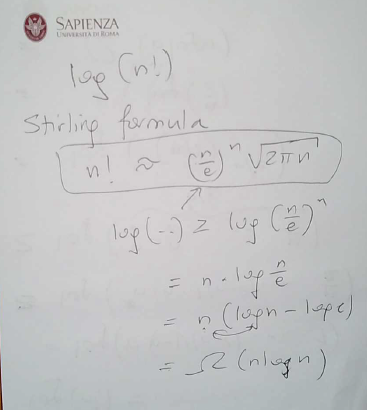 SAPIENZA
UNIVERSITÀ DI ROMA
log (n!)
Stirling formula
n! ≈ (n/e)^n √2πn
log(--) ≥ log (n/e)^n
= n · log n/e
= n (log n - log e)
= Ω (n log n)